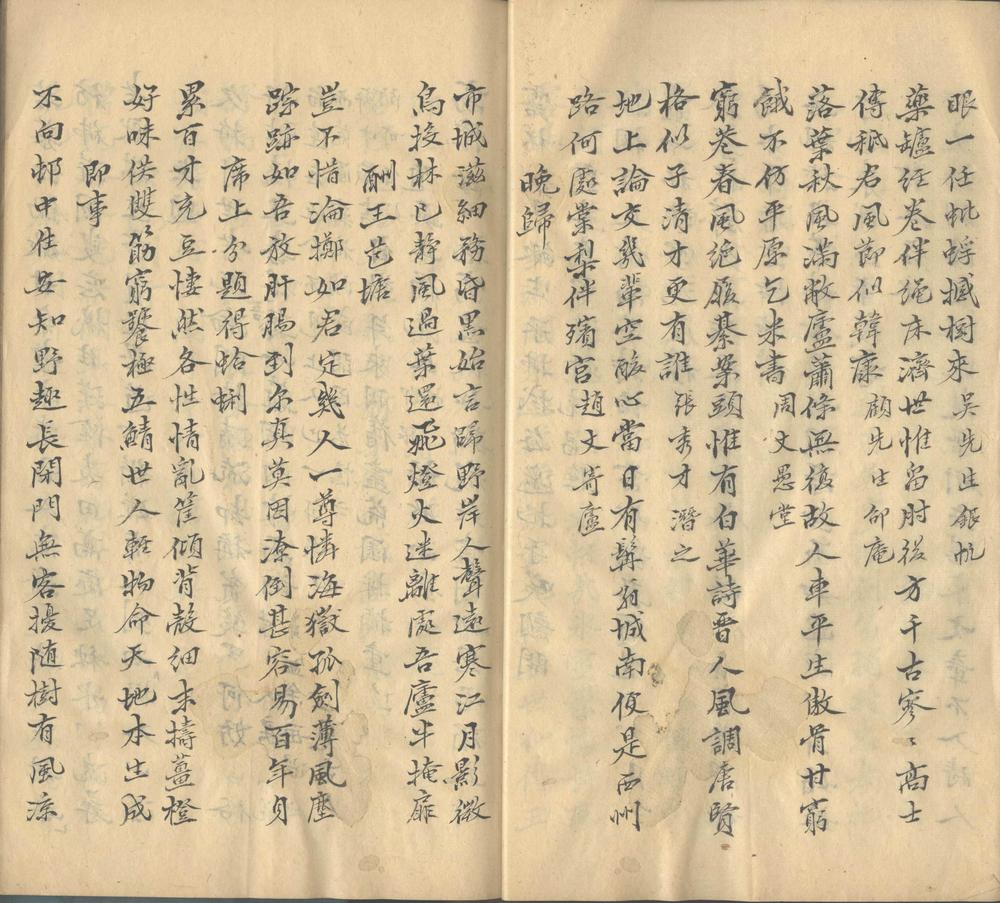 眼一任蚍蜉撼樹來吳先生銀帆
藥罏經卷伴繩床濟世惟留肘後方千古寥〻高士
傳秖君風節似韓康顧先生卻庵
落葉秋風滿敝廬蕭條無復故人車平生傲骨甘窮
餓不仿平原乞米書周文愚堂
窮巷春風絶履綦案頭惟有白華詩晋人風調唐賢
格似子清才更有誰張秀才潛之
地上論交幾輩空酸心當日有髯翁城南便是西州
路何處棠梨伴殯宮趙文寄廬
晚歸
市城滋細務昏黑始言歸野岸人聲遠寒江月影微
鳥投林已靜風過葉還飛燈火迷離處吾廬半掩扉
酬王芭塘
豈不惜淪擲如君定幾人一尊憐海嶽孤劍薄風塵
踪跡如吾放肝腸到尔真莫因潦倒甚容易百年身
席上分題得蛤蜊
累百才充豆悽然各性情亂筐傾背殼細末擣薑橙
好味供雙筯窮饕極五鯖世人輕物命天地本生成
即事
不向邨中住安知野趣長閉門無客擾随樹有風涼